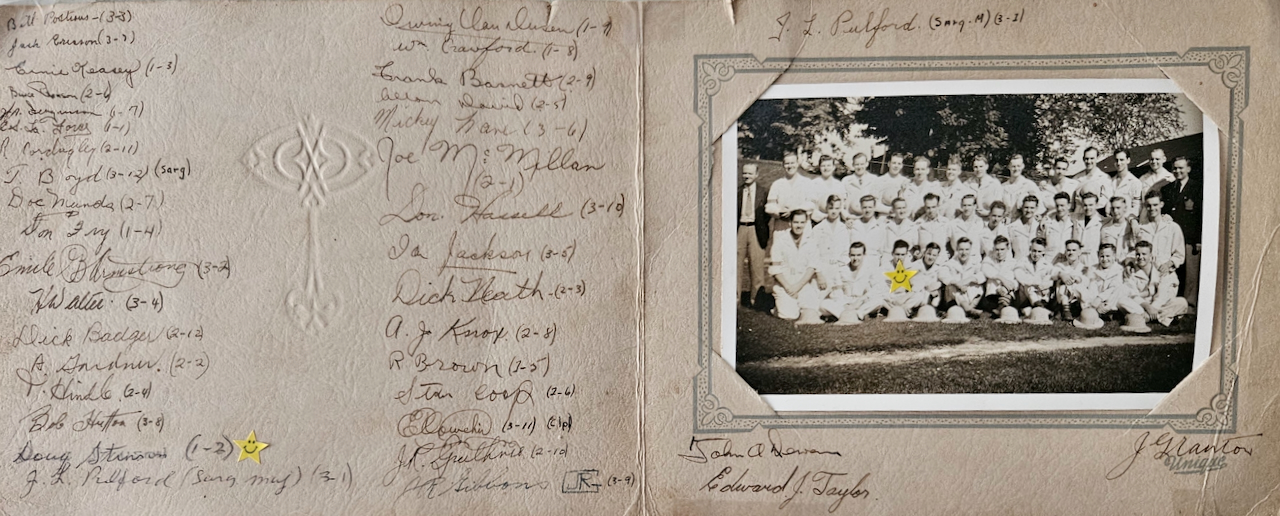 Bill Postians - (3-3)
Jack (3-7)
Ernie Keasey (1-3)
(2-6)
(1-7)
(1-1)
R (2-11)
T. Boyd (3-12) (Sarg)
Doc Munda (2-7)
Don Fry (1-4)
Emile B Armstrong (3-2)
(3-4)
Dick Badger (2-12)
A. Gardner. (2-2)
T. Hindle (2-4)
Bob Hutton (3-8)
Doug Stinson (1-2)
J. L. Pulford (Sarg maj) (3-1)
Irving Van Dusen (1-9)
Wm Crawford. (1-8)
Frank Barnett (2-9)
David (2-5)
Micky Kane (3-6)
Joe McMillan
(2-1)
Don. Hassell (3-10)
Ia Jackson (3-5)
Dick Heath - (2-3)
A. Jo Knox. (2-8)
R Brown (3-5)
Stan Coop (2-6)
(3-11) (Clp)
J.R. Guthrie (2-10)
J R Gibbons JR (3-9)
J. L. Pulford. (Sarg. M) (3-1)
John A
Edward J. Taylor.
J Granton
Unique